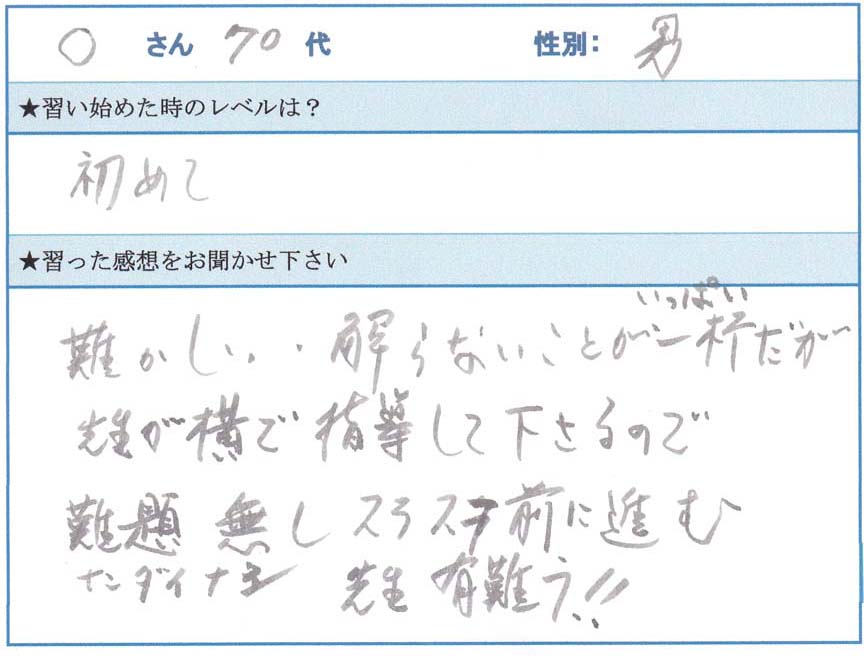 ○ さん 70 代 性別: 男
★習い始めた時のレベルは?
初めて
★習った感想をお聞かせ下さい
いっぱい
難かしい、・解らないことが一杯だが
先生が横で指導して下さるので
難題無しスラスラ前に進む
ナンダイナシ
先生有難う!!